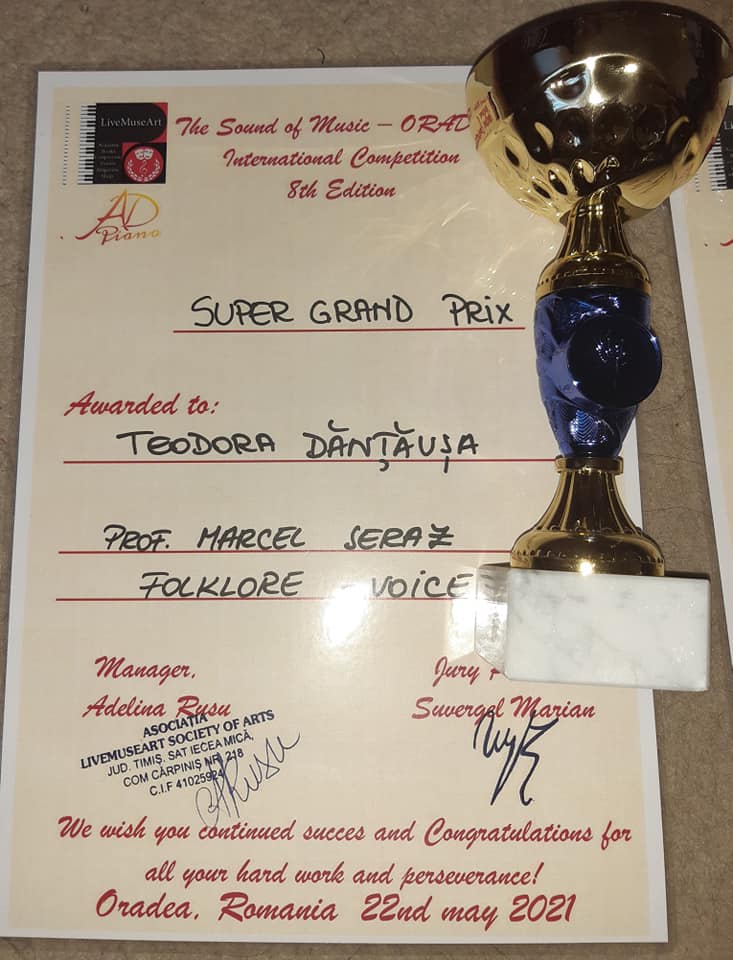 LiveMuseArt
The Sound of Music – ORAD
International Competition
8th Edition
AD
Piano
SUPER GRAND PRIX
Awarded to:
TEODORA DĂNȚĂUȘA
PROF. MARCEL SERAZ
FOLKLORE - VOICE
Manager,
Adelina Rusu
ASOCIAȚIA
LIVEMUSEART SOCIETY OF ARTS
JUD. TIMIȘ. SAT IECEA MICĂ,
COM CĂRPINIȘ NR 218
C.I.F 41025924
Jury
Suvergel Marian
We wish you continued succes and Congratulations for
all your hard work and perseverance!
Oradea, Romania 22nd may 2021